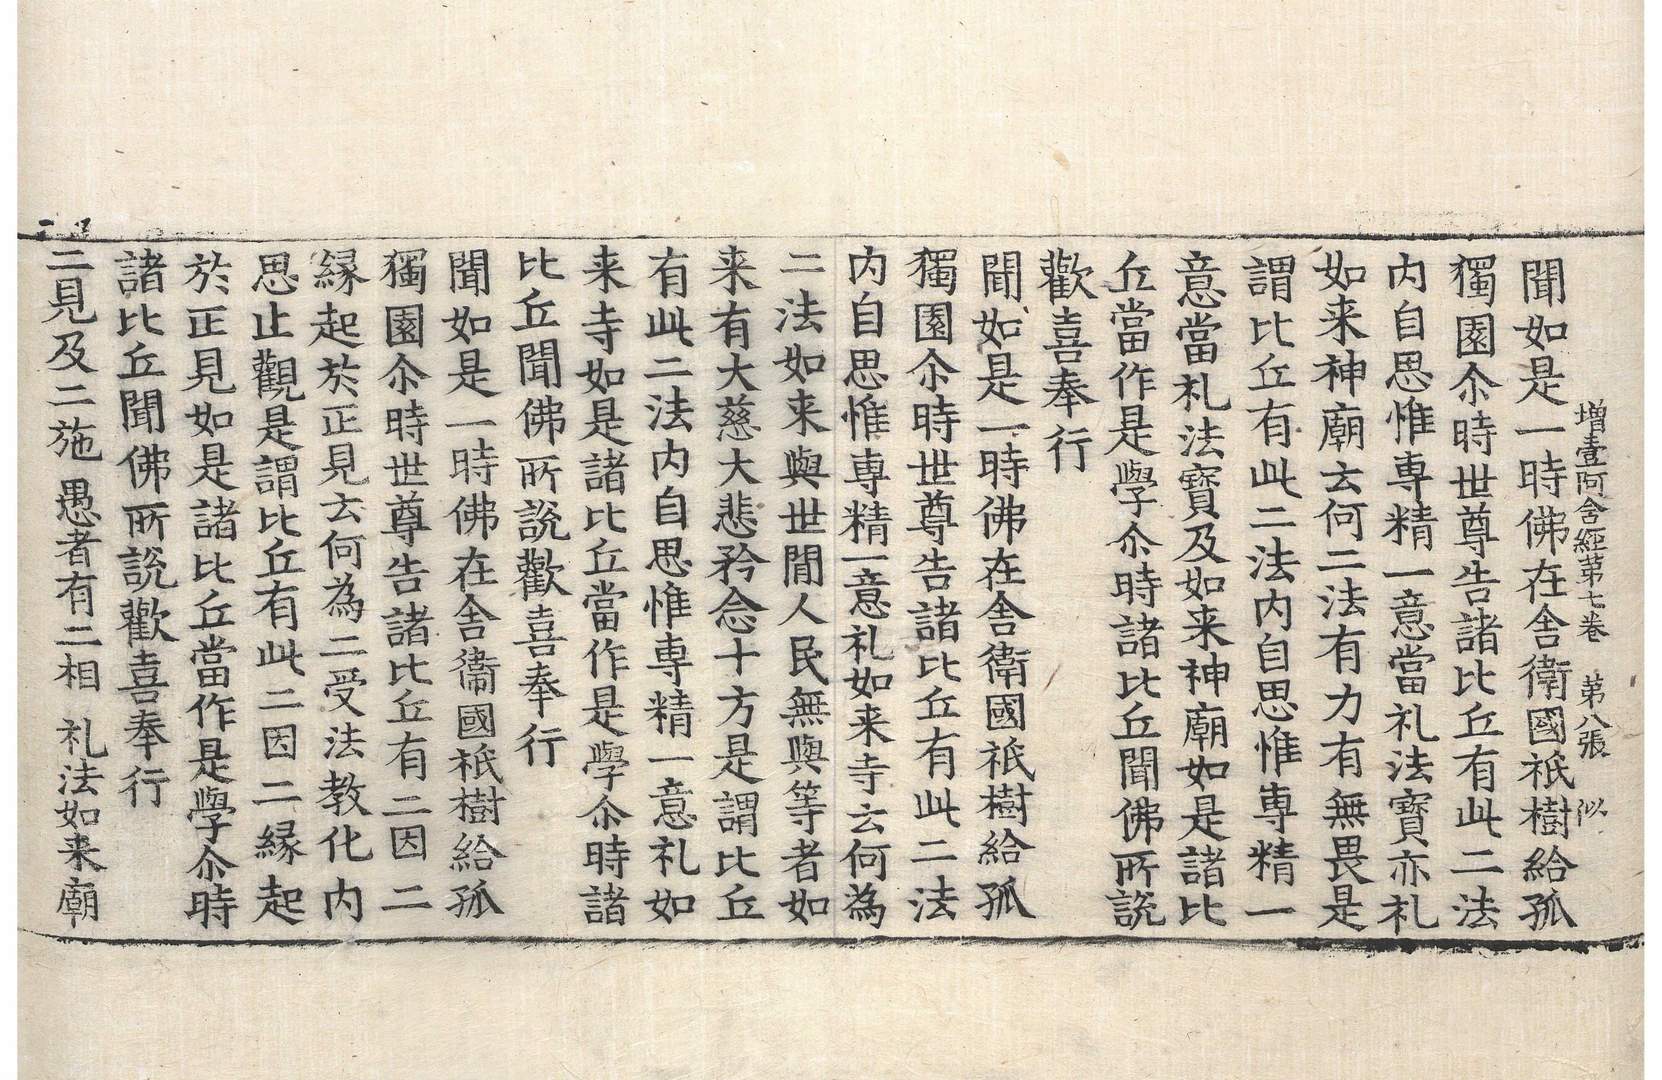 增壹阿含經第七卷　第八張　似
聞如是一時佛在舍衛國祇樹給孤
獨園尒時世尊告諸比丘有此二法
内自思惟専精一意當礼法寶亦礼
如来神廟云何二法有力有無畏是
謂比丘有此二法内自思惟専精一
意當礼法寶及如来神廟如是諸比
丘當作是學尒時諸比丘聞佛所說
歡喜奉行
聞如是一時佛在舍衛國祇樹給孤
獨園尒時世尊告諸比丘有此二法
内自思惟専精一意礼如来寺云何為
二法如来與世間人民無與等者如
来有大慈大悲矜念十方是謂比丘
有此二法内自思惟専精一意礼如
来寺如是諸比丘當作是學尒時諸
比丘聞佛所說歡喜奉行
聞如是一時佛在舍衛國祇樹給孤
獨園尒時世尊告諸比丘有二因二
縁起於正見云何為二受法教化内
思止觀是謂比丘有此二因二縁起
於正見如是諸比丘當作是學尒時
諸比丘聞佛所說歡喜奉行
二見及二施　愚者有二相　礼法如来廟